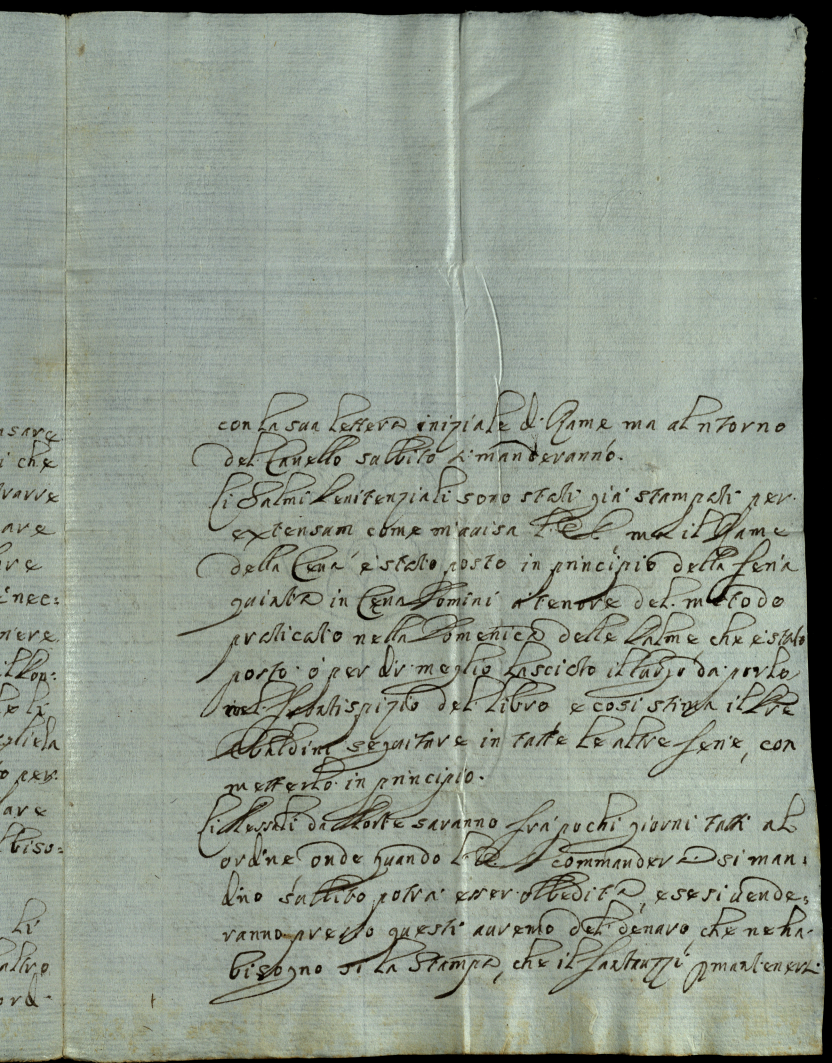 asare
i che
trarre
are
are
è nec:
nere
il Pop:
he le
gliela
to per
are
lbiso:
li
altro
ord:
con la sua lettera iniziale di Rame ma al ritorno
del Canello subbito si manderanno.
Li Salmi Penitenziali sono stati già stampati per
extensam come m'auisa ma il Rame
della Cena è stato posto in principio della feria
quinta in Cena Domini a tenore del metodo
praticato nella Domenica delle Palme che è stato
posto o per dir meglio lasciato il largo da porlo
nel del libro e così stima il Pre
Ubaldini seguitare in tutte le altre ferie, con
metterlo in principio.
Li Messali da Morte saranno frà pochi giorni tutti al
ordine onde quando commanderà si man:
dino subbito potrà esser obbedita, e se si uende:
ranno presto questi auremo del denaro, che ne ha
bisogno si la Stampa, che il Santuzzi p mantenersi